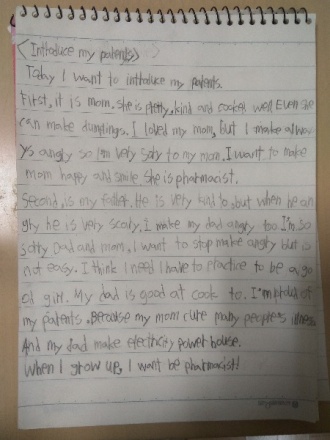 <Introduce my parents>
Today I want to introduce my parents.
First, it is mom. She is pretty, kind and cooked well. Even she
can make dumplings. I loved my mom, but I make alwa
ys angry so I'm very sory to my mom. I want to make
mom happy and smile. She is pharmacist.
Second, is my father. He is very kind to, but when he an
gry he is very scary. I make my dad angry too I'm so
sorry Dad and mom. I want to stop make angry but is
not easy. I think I need I have to practice to be a go
od girl. My dad is good at cook to. I'm proud of
my parents. Because my mom cure many people's illness.
And my dad make electricity power house.
When I grow up, I want be pharmacist!